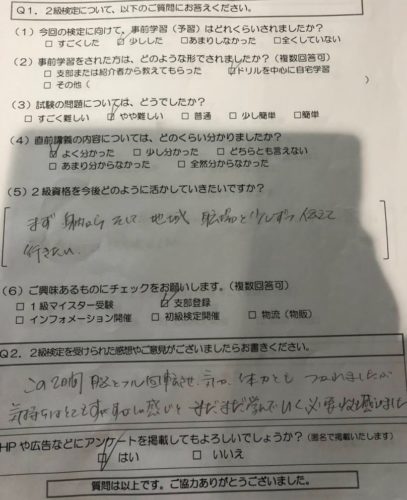 Q1．2級検定について、以下のご質問にお答えください。
（1）今回の検定に向けて、事前学習（予習）はどれくらいされましたか？
□すごくした ☑少しした □あまりしなかった □全くしていない
（2）事前学習をされた方は、どのような形でされましたか？（複数回答可）
□支部または紹介者から教えてもらった ☑ドリルを中心に自宅学習
□その他（ ）
（3）試験の問題については、どうでしたか？
□すごく難しい ☑やや難しい □普通 □少し簡単 □簡単
（4）直前講義の内容については、どのくらい分かりましたか？
☑よく分かった □少し分かった □どちらとも言えない
□あまり分からなかった □全然分からなかった
（5）2級資格を今後どのように活かしていきたいですか？
まず 身内から そして 地域 職場と少しずつ伝えて
行きたい
（6）ご興味あるものにチェックをお願いします。（複数回答可）
□1級マイスター受験 ☑支部登録
□インフォメーション開催 □初級検定開催 □物流（物販）
Q2．2級検定を受けられた感想やご意見がございましたらお書きください。
この2日間 脳をフル回転させ、気力、体力とも つかれましたが
気持ちはとてもすがすがしい感じと まだまだ学んでいく必要性を感じました
HPや広告などにアンケートを掲載してもよろしいでしょうか？（匿名で掲載いたします）
☑はい □いいえ
質問は以上です。ご協力ありがとうございました。